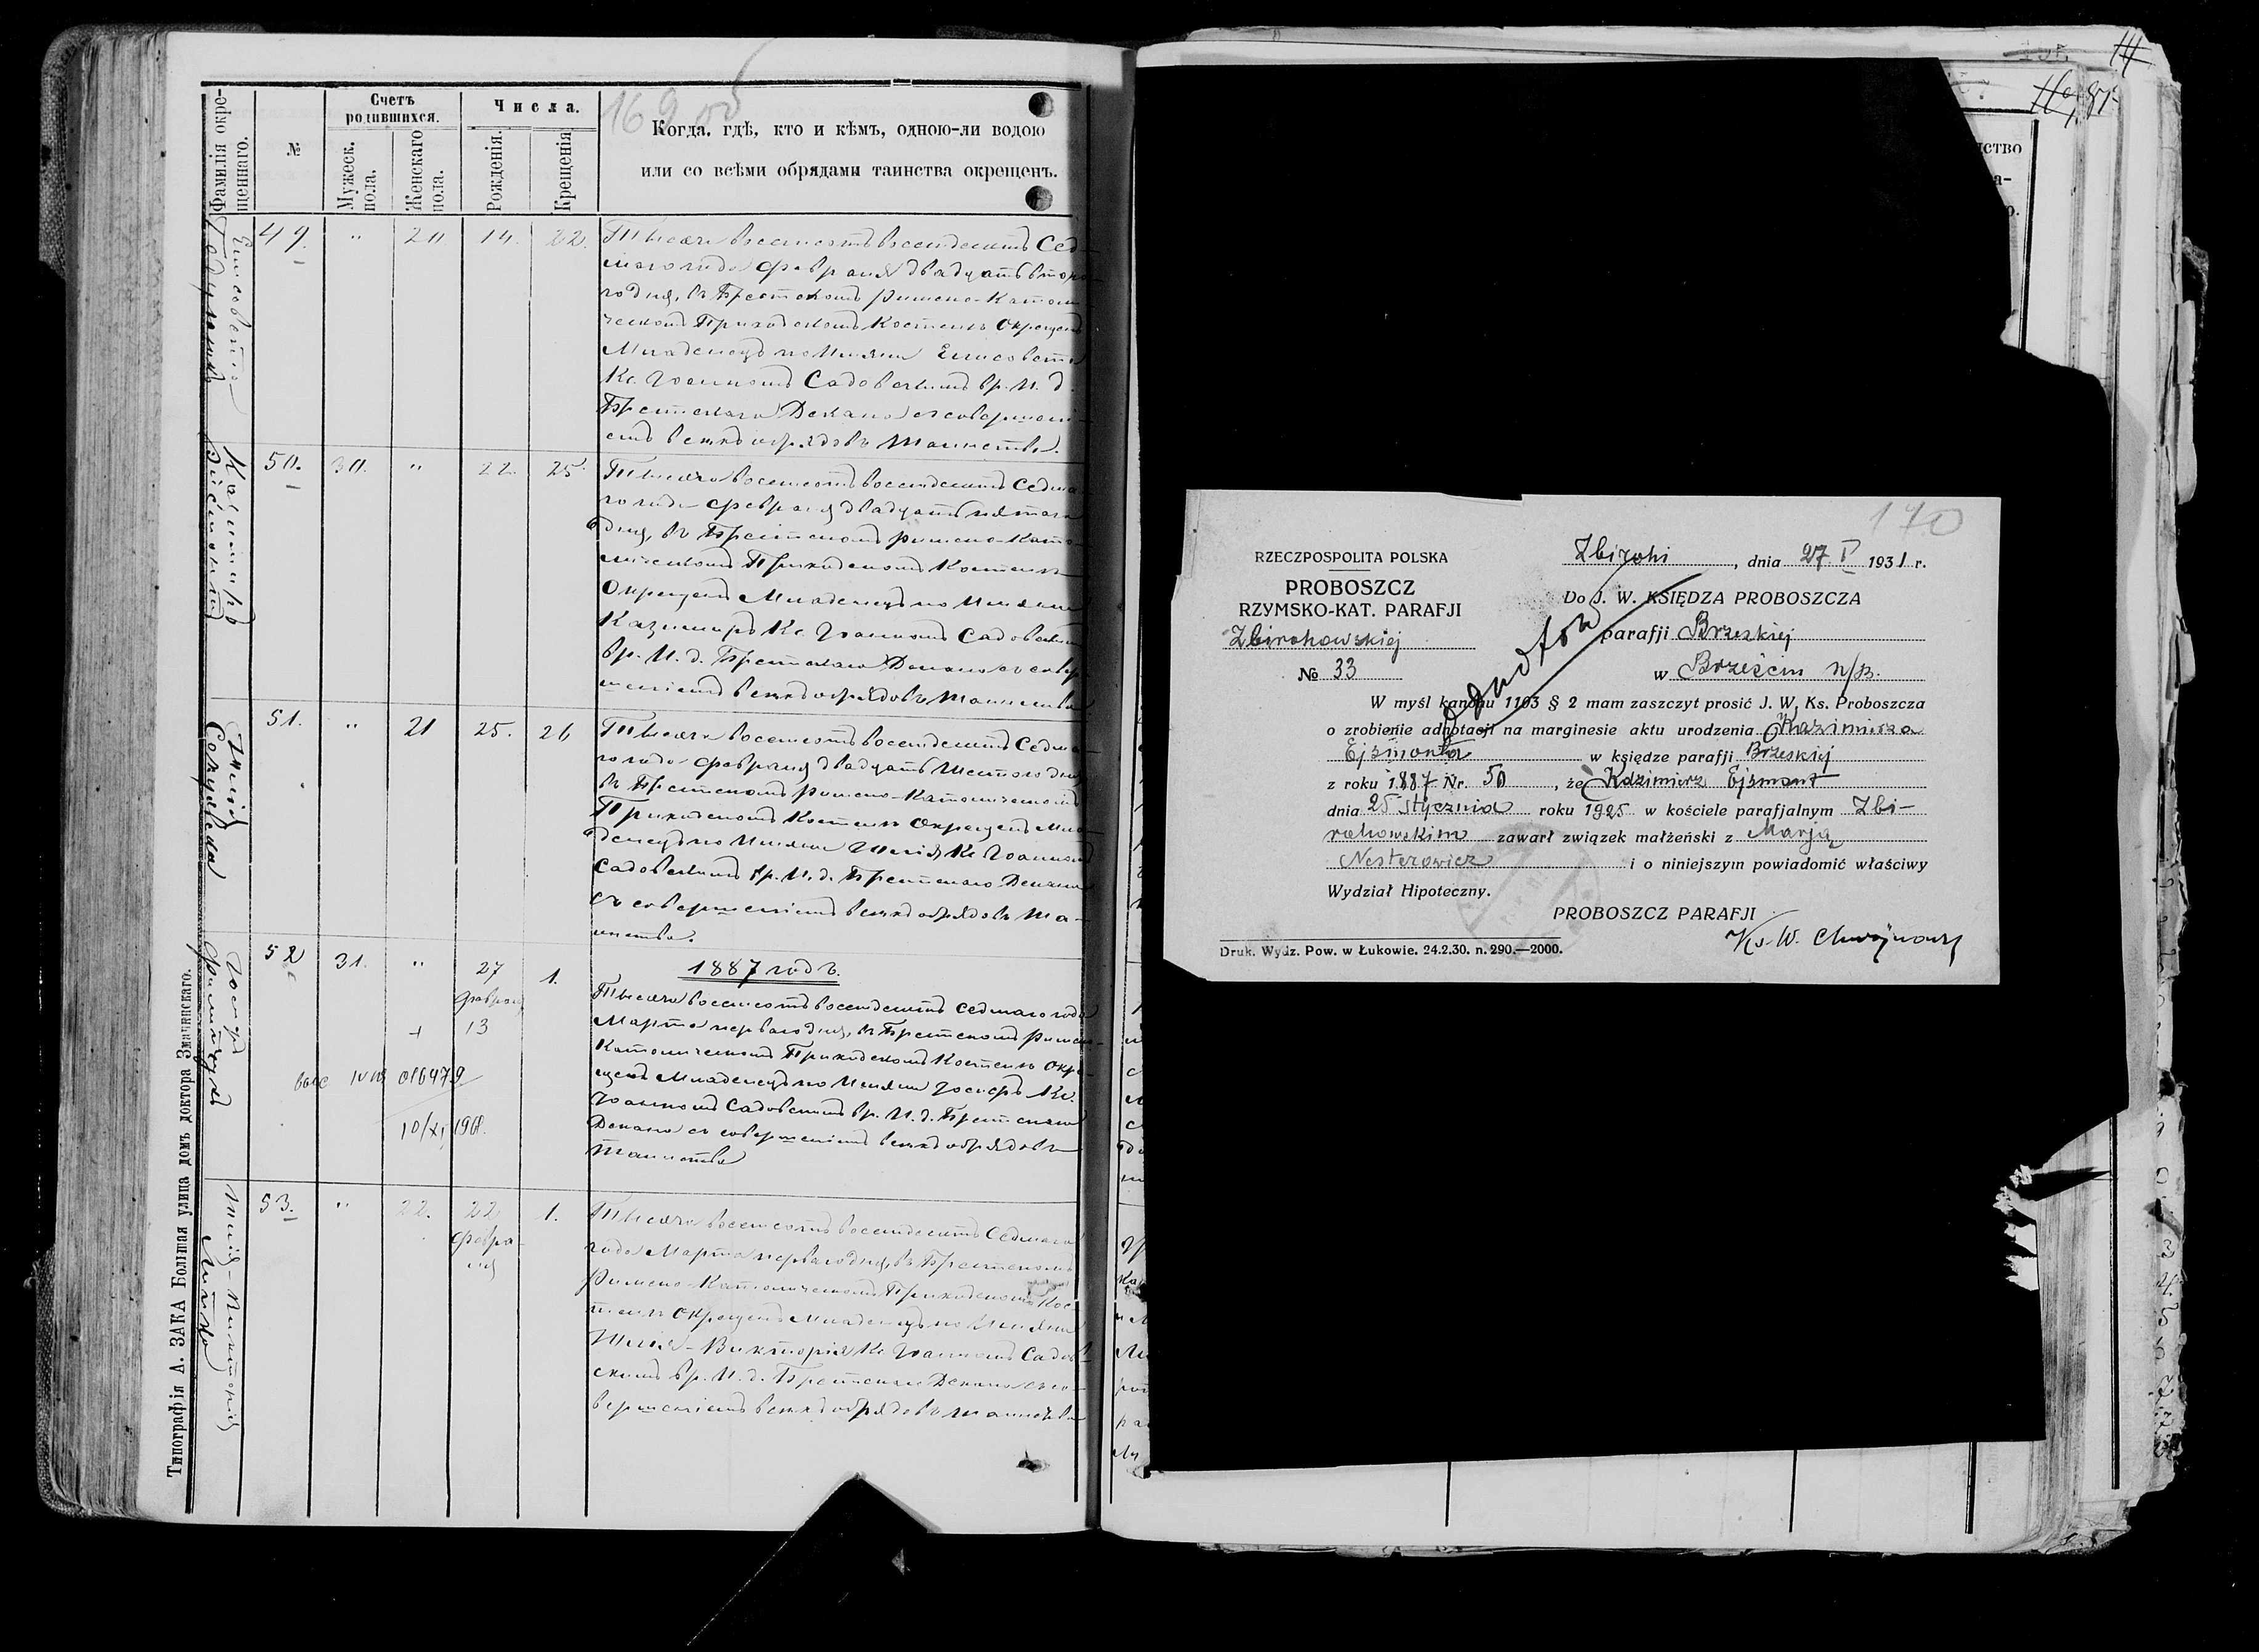 169 об
Фамилія окре-
щеннаго.
№
Счетъ
родившихся.
Мужеск.
пола.
Женскаго
пола.
Числа.
Рожденія.
Крещенія
Когда, гдѣ, кто и кѣмъ, одною-ли водою
или со всѣми обрядами таинства окрещенъ.
Елисовета
49. " 20 14. 22.
Тысяча восемсотъ восемдесятъ Сед-
маго года февраля двадцать второ-
го дня, въ Брестскомъ римско-Католи
ческомъ Приходскомъ Костелѣ Окрещенъ
Младенецъ по Имяни Елисовета
Кс. Іоанномъ Садовскимъ вр. И. д.
Брестскаго Декана съ совершені-
емъ всѣхъ обрядовъ таинства.
Казимиръ
Эйсмонтъ
50. 30. " 22. 25.
Тысяча восемсотъ восемдесятъ Седма
го года февраля двадцать пятаго
дня, въ Брестскомъ римско-Като-
лическомъ Приходскомъ Костелѣ
Окрещенъ Младенецъ по Имяни
Казимиръ Кс. Іоанномъ Садовскимъ
вр. И. д. Брестскаго Декана съ совер
шеніемъ всѣхъ обрядовъ таинства
51. " 21 25. 26
Тысяча восемсотъ восемдесятъ Седма
го года февраля двадцать шестого дня
въ Брестскомъ римско-Католическомъ
Приходскомъ Костелѣ Окрещенъ Мла-
денецъ по Имяни Юлія Кс. Іоанномъ
Садовскимъ вр. И. д. Брестскаго Декана
съ совершеніемъ всѣхъ обрядовъ та-
инства.
Іосифъ
52 31. " 27 1.
февраля
+ 13
10/XI 1968.
1887 годъ.
Тысяча восемсотъ восемдесятъ седмаго года
Марта перваго дня, въ Брестскомъ Римско-
Католическомъ Приходскомъ Костелѣ Окре-
щенъ Младенецъ по Имяни Іосифъ Кс.
Іоанномъ Садовскимъ вр. И. д. Брестскаго
Декана съ совершеніемъ всѣхъ обрядовъ
таинства
Юлія-Викторія
53. " 22. 22 1.
февра-
ля
Тысяча восемсотъ восемдесятъ Седмаго
года Марта перваго дня, въ Брестскомъ
Римско-Католическомъ Приходскомъ Кос-
телѣ Окрещенъ Младенецъ по Имяни
Юлія-Викторія Кс. Іоанномъ Садов-
скимъ вр. И. д. Брестскаго Декана съ со-
вершеніемъ всѣхъ обрядовъ таинства
Типографія А. ЗАКА Большая улица домъ доктора Значинскаго.
170
RZECZPOSPOLITA POLSKA
PROBOSZCZ
RZYMSKO-KAT. PARAFJI
Zbirohowskiej
№ 33
Zbirohi, dnia 27 I 1931 r.
Do J. W. KSIĘDZA PROBOSZCZA
parafji Brzeskiej
w Brześciu n/B.
W myśl kanonu 1103 § 2 mam zaszczyt prosić J. W. Ks. Proboszcza
o zrobienie adnotacji na marginesie aktu urodzenia Kazimierza
Ejsmonta w księdze parafji Brzeskiej
z roku 1887 Nr. 50, że Kazimierz Ejsmont
dnia 25 stycznia roku 1925 w kościele parafjalnym Zbi-
rohowskim zawarł związek małżeński z Marją
Nesterowicz i o niniejszym powiadomić właściwy
Wydział Hipoteczny.
PROBOSZCZ PARAFJI
Druk. Wydz. Pow. w Łukowie. 24.2.30. n. 290.—2000.